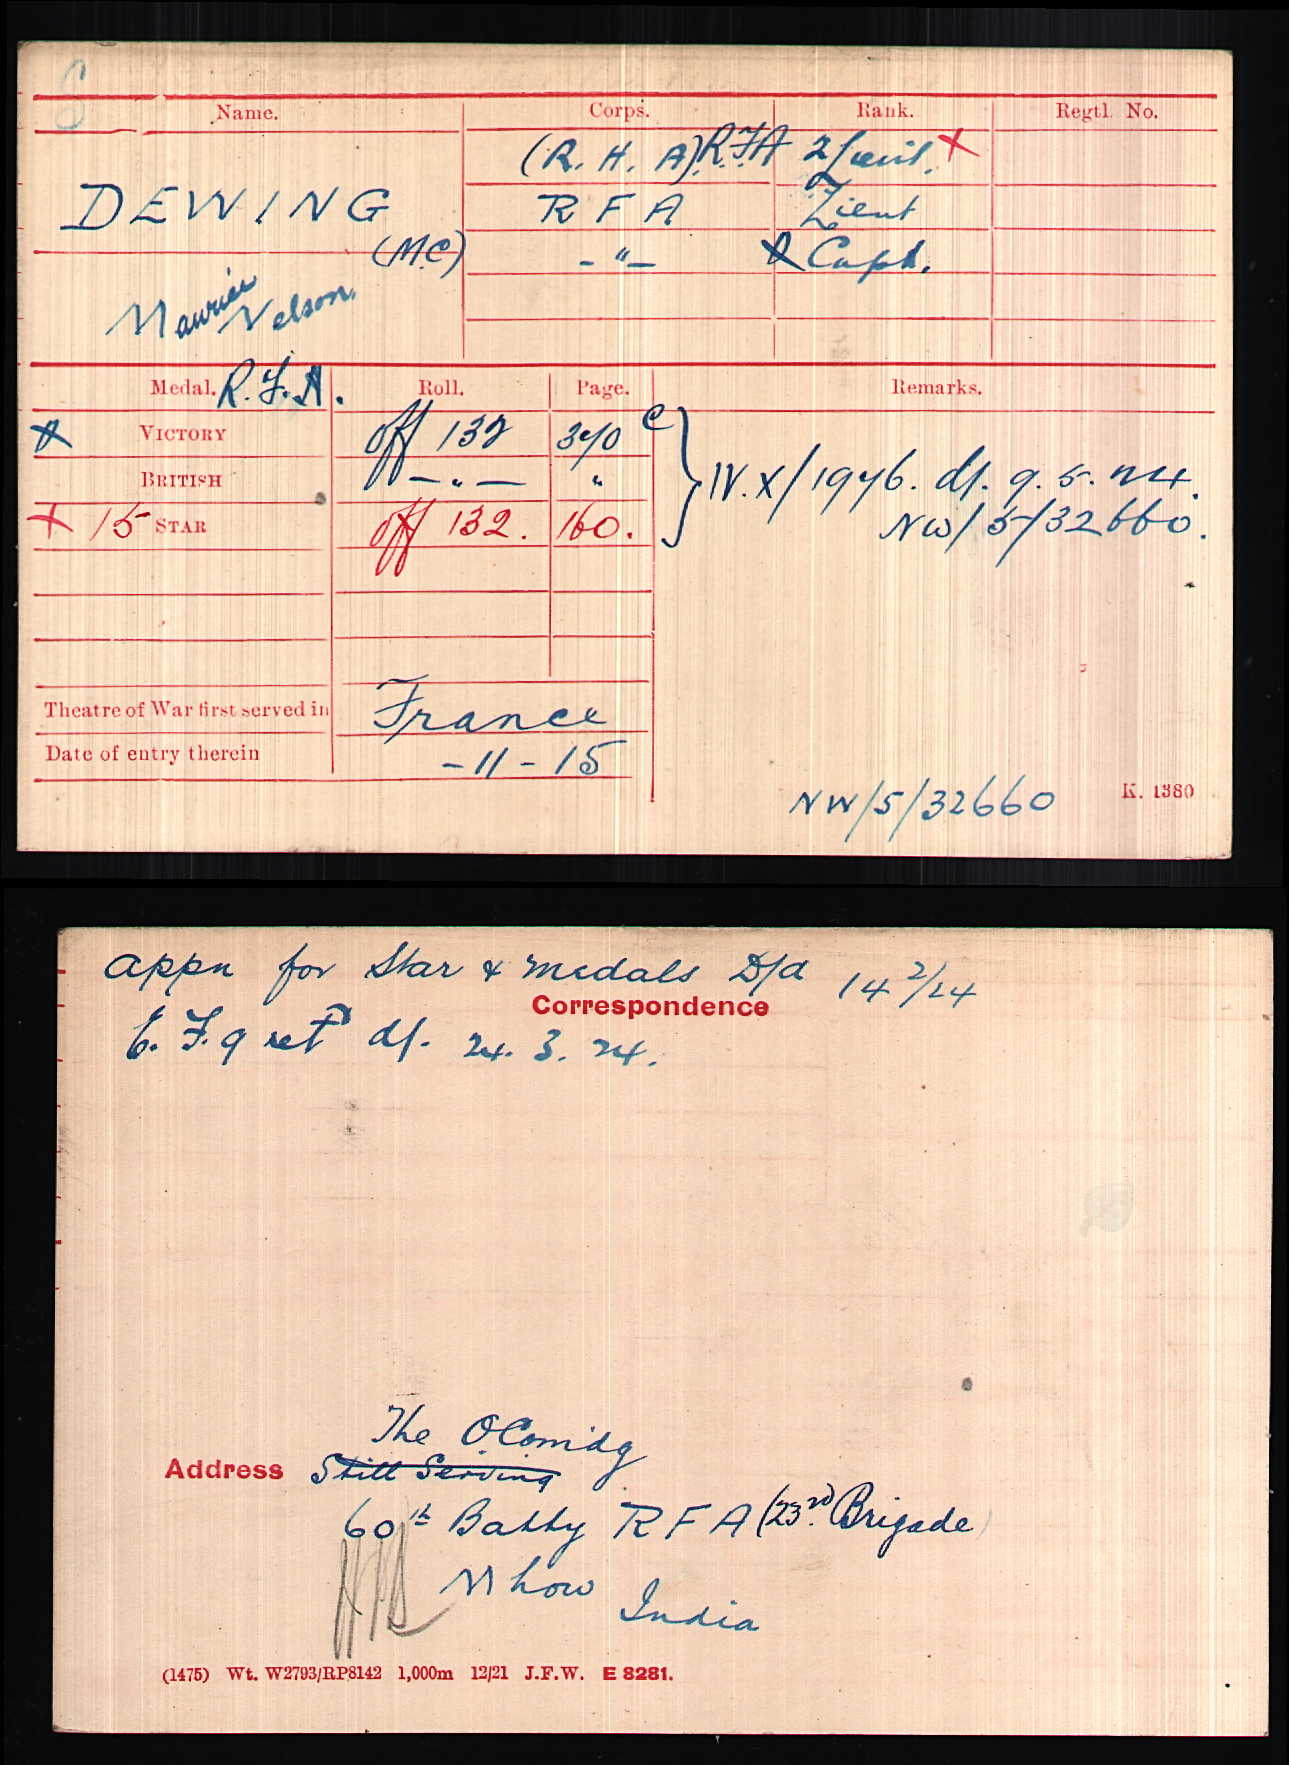 Name. Corps. Rank. Regtl. No.
(R. H. A) R.F.A 2/Lieut. X
DEWING R F A Lieut
(M.C) - " - X Capt.
Maurice Nelson.
Medal. R.F.A. Roll. Page. Remarks.
X VICTORY off 132 340 C
BRITISH - " - " IV.X/1946. d/. 9. 5. 24.
X 15 STAR off 132. 160. NW/5/32660.
Theatre of War first served in France
Date of entry therein -11-15
NW/5/32660 K. 1380
appn for Star & medals D/d 14 2/24
Correspondence
d/. 24. 3. 24.
The O.Comdg
Address Still Serving
60th Batty R F A (23rd Brigade)
Mhow India
(1475) Wt. W2793/RP8142 1,000m 12/21 J.F.W. E 8281.